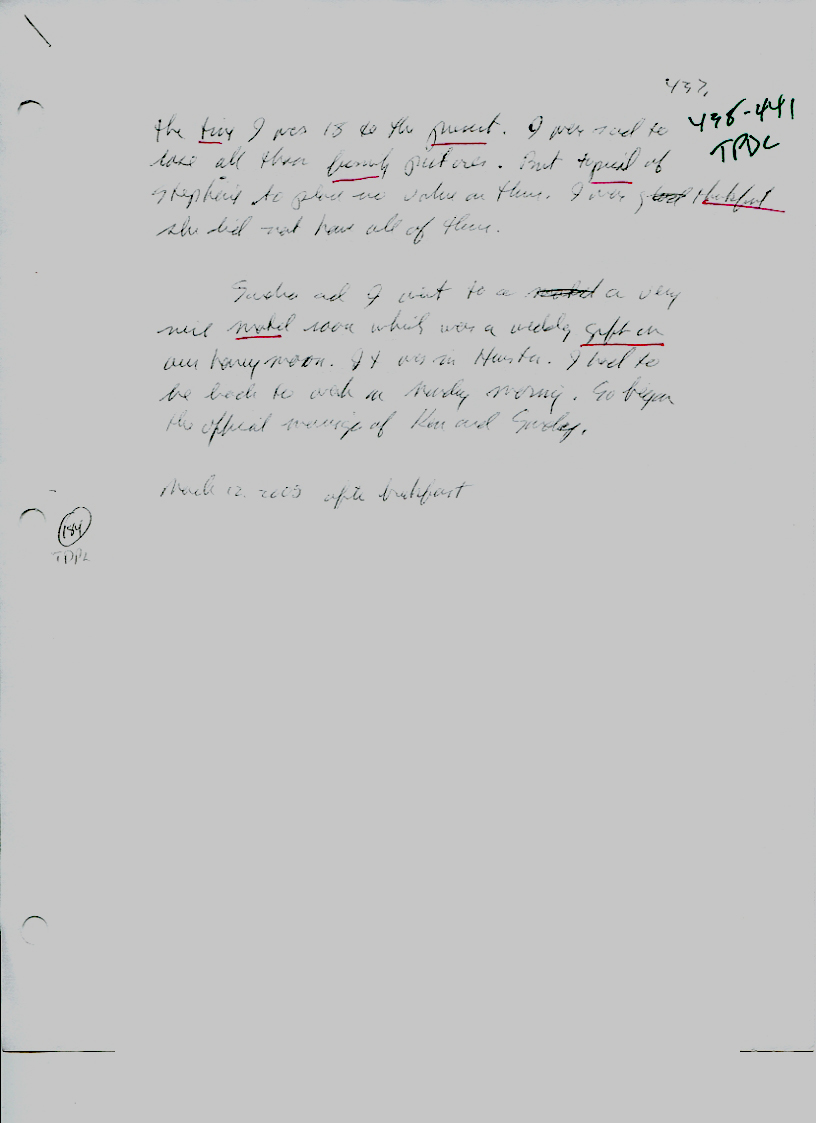 437.
436-441
TPDL
the time I was 18 to the present. I was sad to
lose all those family pictures. But typical of
Stephenie to place no value on them. I was glad thankful
she did not have all of them.
and I went to a motel a very
nice motel room which was a wedding gift on
our honeymoon. It was in Houston. I had to
be back to work on Monday morning. So began
the official marriage of Ken and
March 12, 2003 after breakfast
184
TPDL